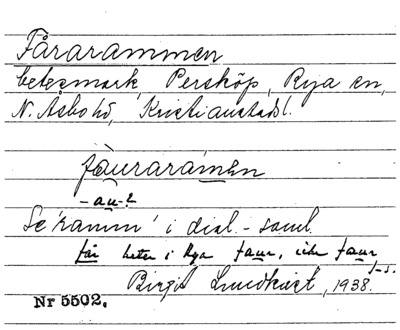 Fårarammen
betesmark, Perstöp, Rya sn,
N. Åsbo hd, Kristianstads l.
fàuraramen
-au-?
Se 'ramm' i dial.-saml.
får heter i Rya faur, icke faur
Birgit Lundkvist, 1938.
Nr 5502.